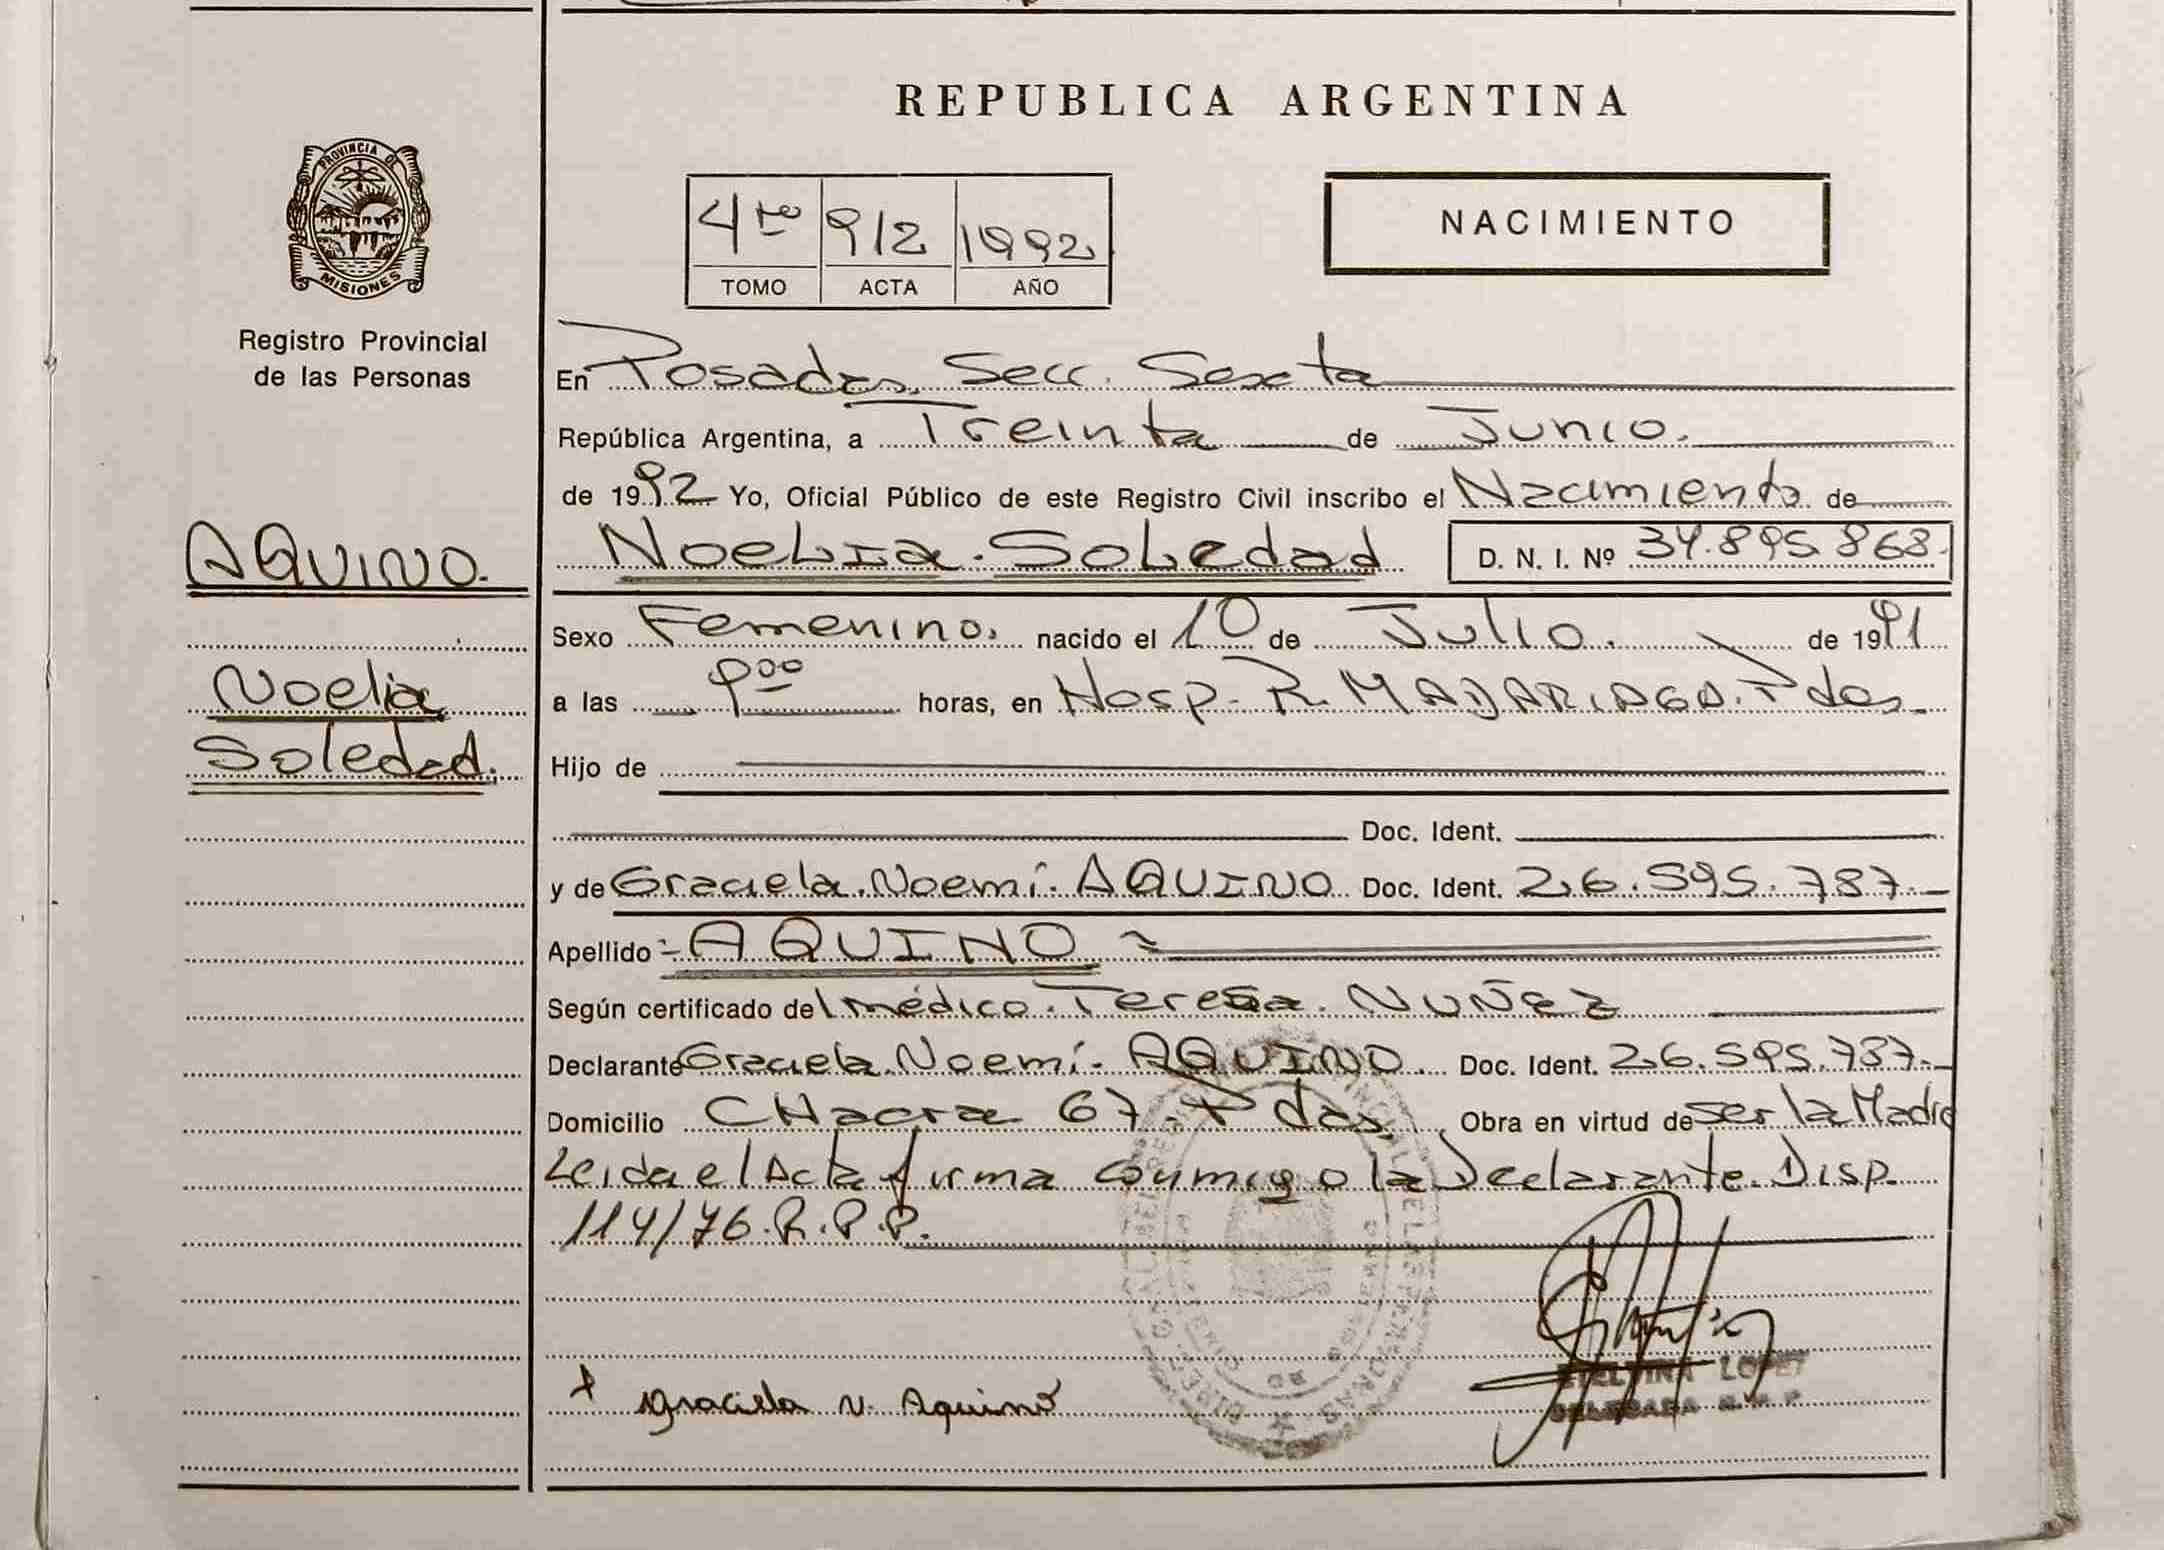 REPUBLICA ARGENTINA
PROVINCIA DE
MISIONES
Registro Provincial
de las Personas
4to 912 1992
TOMO ACTA AÑO
NACIMIENTO
En Posadas, Secc. Sexta
República Argentina, a Treinta de Junio.
de 1992 Yo, Oficial Público de este Registro Civil inscribo el Nacimiento de
AQUINO.
Noelia
Soledad.
Noelia Soledad D. N. I. Nº 34.895.868.
Sexo Femenino. nacido el 10 de Julio. de 1991
a las 9ºº horas, en Hosp. R. MADARIAGA. Pdas.
Hijo de
Doc. Ident.
y de Graciela Noemí AQUINO Doc. Ident. 26.595.787.
Apellido AQUINO
Según certificado del médico Teresa NUÑEZ
Declarante Graciela Noemí AQUINO. Doc. Ident. 26.595.787.
Domicilio CHacra 67 Pdas. Obra en virtud de ser la Madre
Leida el Acta firma conmigo la Declarante. Disp.
114/76.R.P.P.
Graciela N. Aquino
LOPEZ
DELEGADA R.P.P.